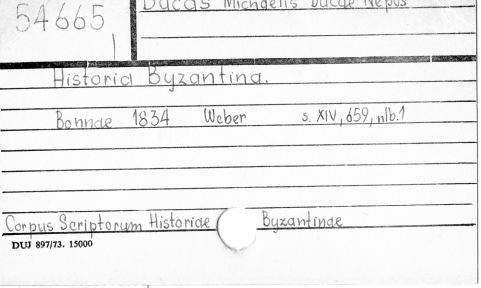 54665
Ducas Michaelis Ducae Nepos
Historia Byzantina.
Bonnae 1834 Weber s. XIV, 659, nlb.1
Corpus Scriptorum Historiae Byzantinae
DUJ 897/73. 15000